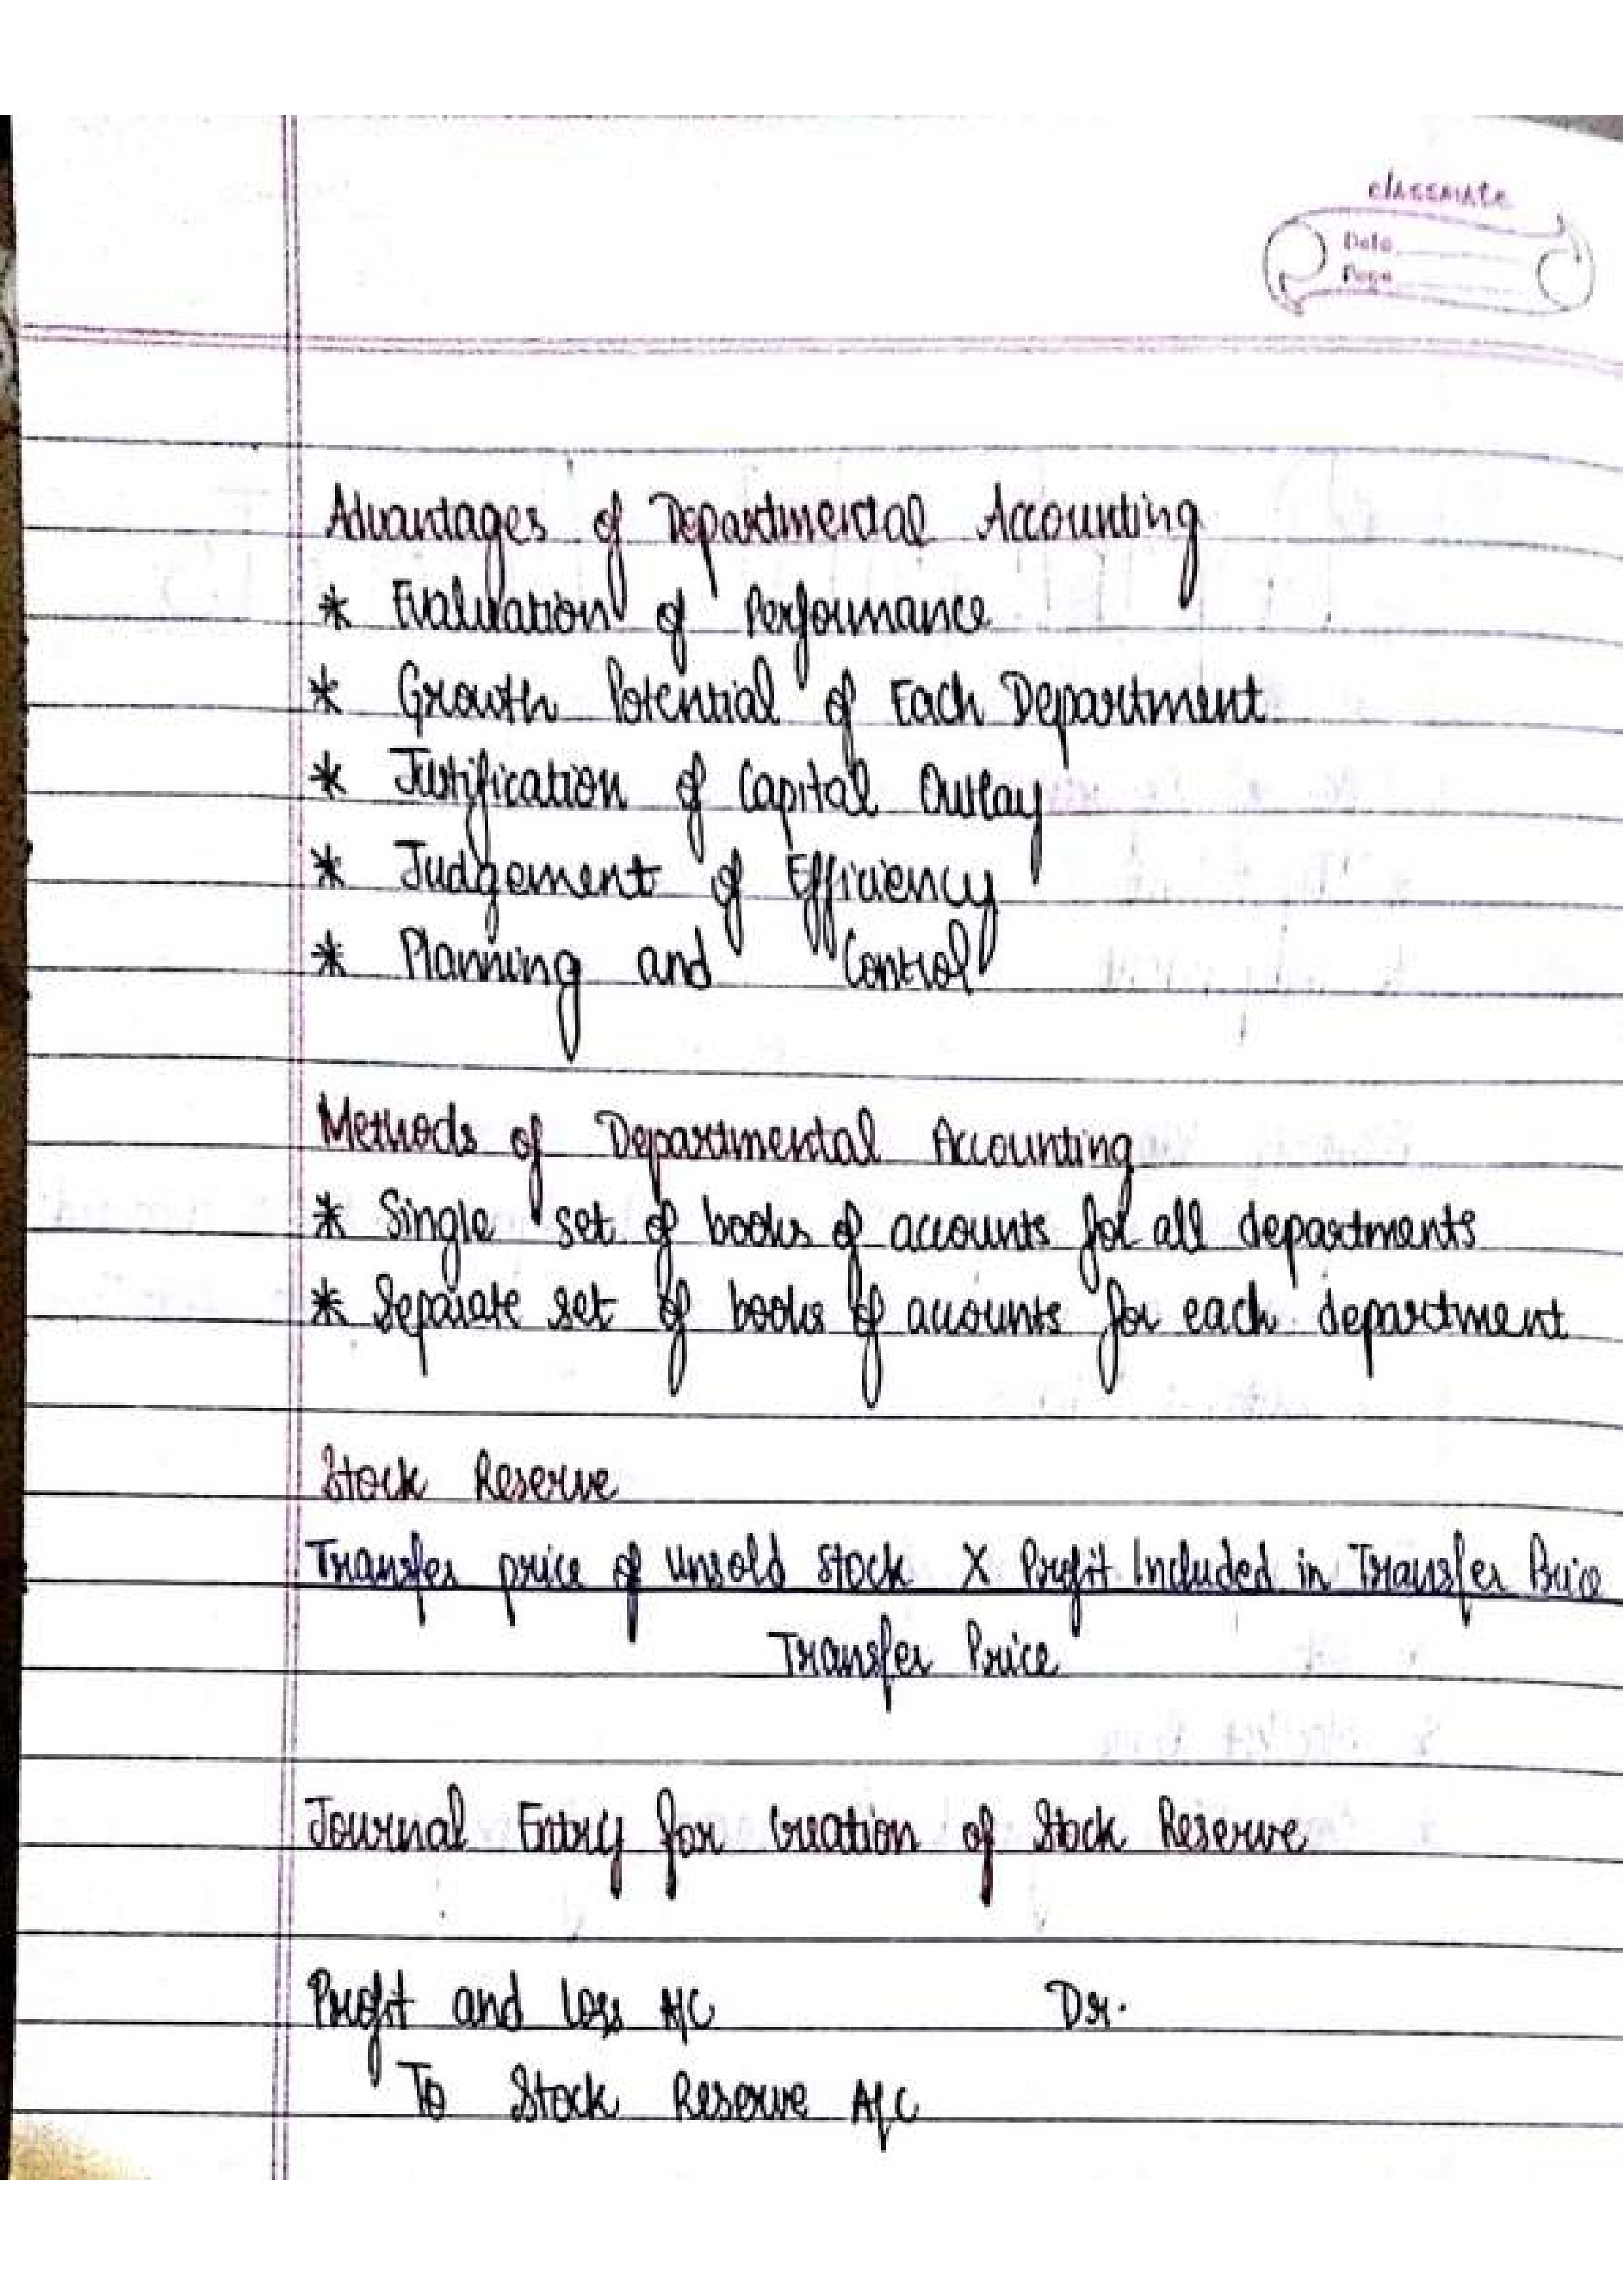 classmate
Date
Page
Advantages of Departmental Accounting
* Evaluation of Performance
* Growth Potential of Each Department
* Justification of Capital Outlay
* Judgement of Efficiency
* Planning and Control
Methods of Departmental Accounting
* Single set of books of accounts for all departments
* Separate set of books of accounts for each department
Stock Reserve
Transfer price of Unsold Stock X Profit Included in Transfer Price
Transfer Price
Journal Entry for Creation of Stock Reserve
Profit and Loss A/C Dr.
To Stock Reserve A/C